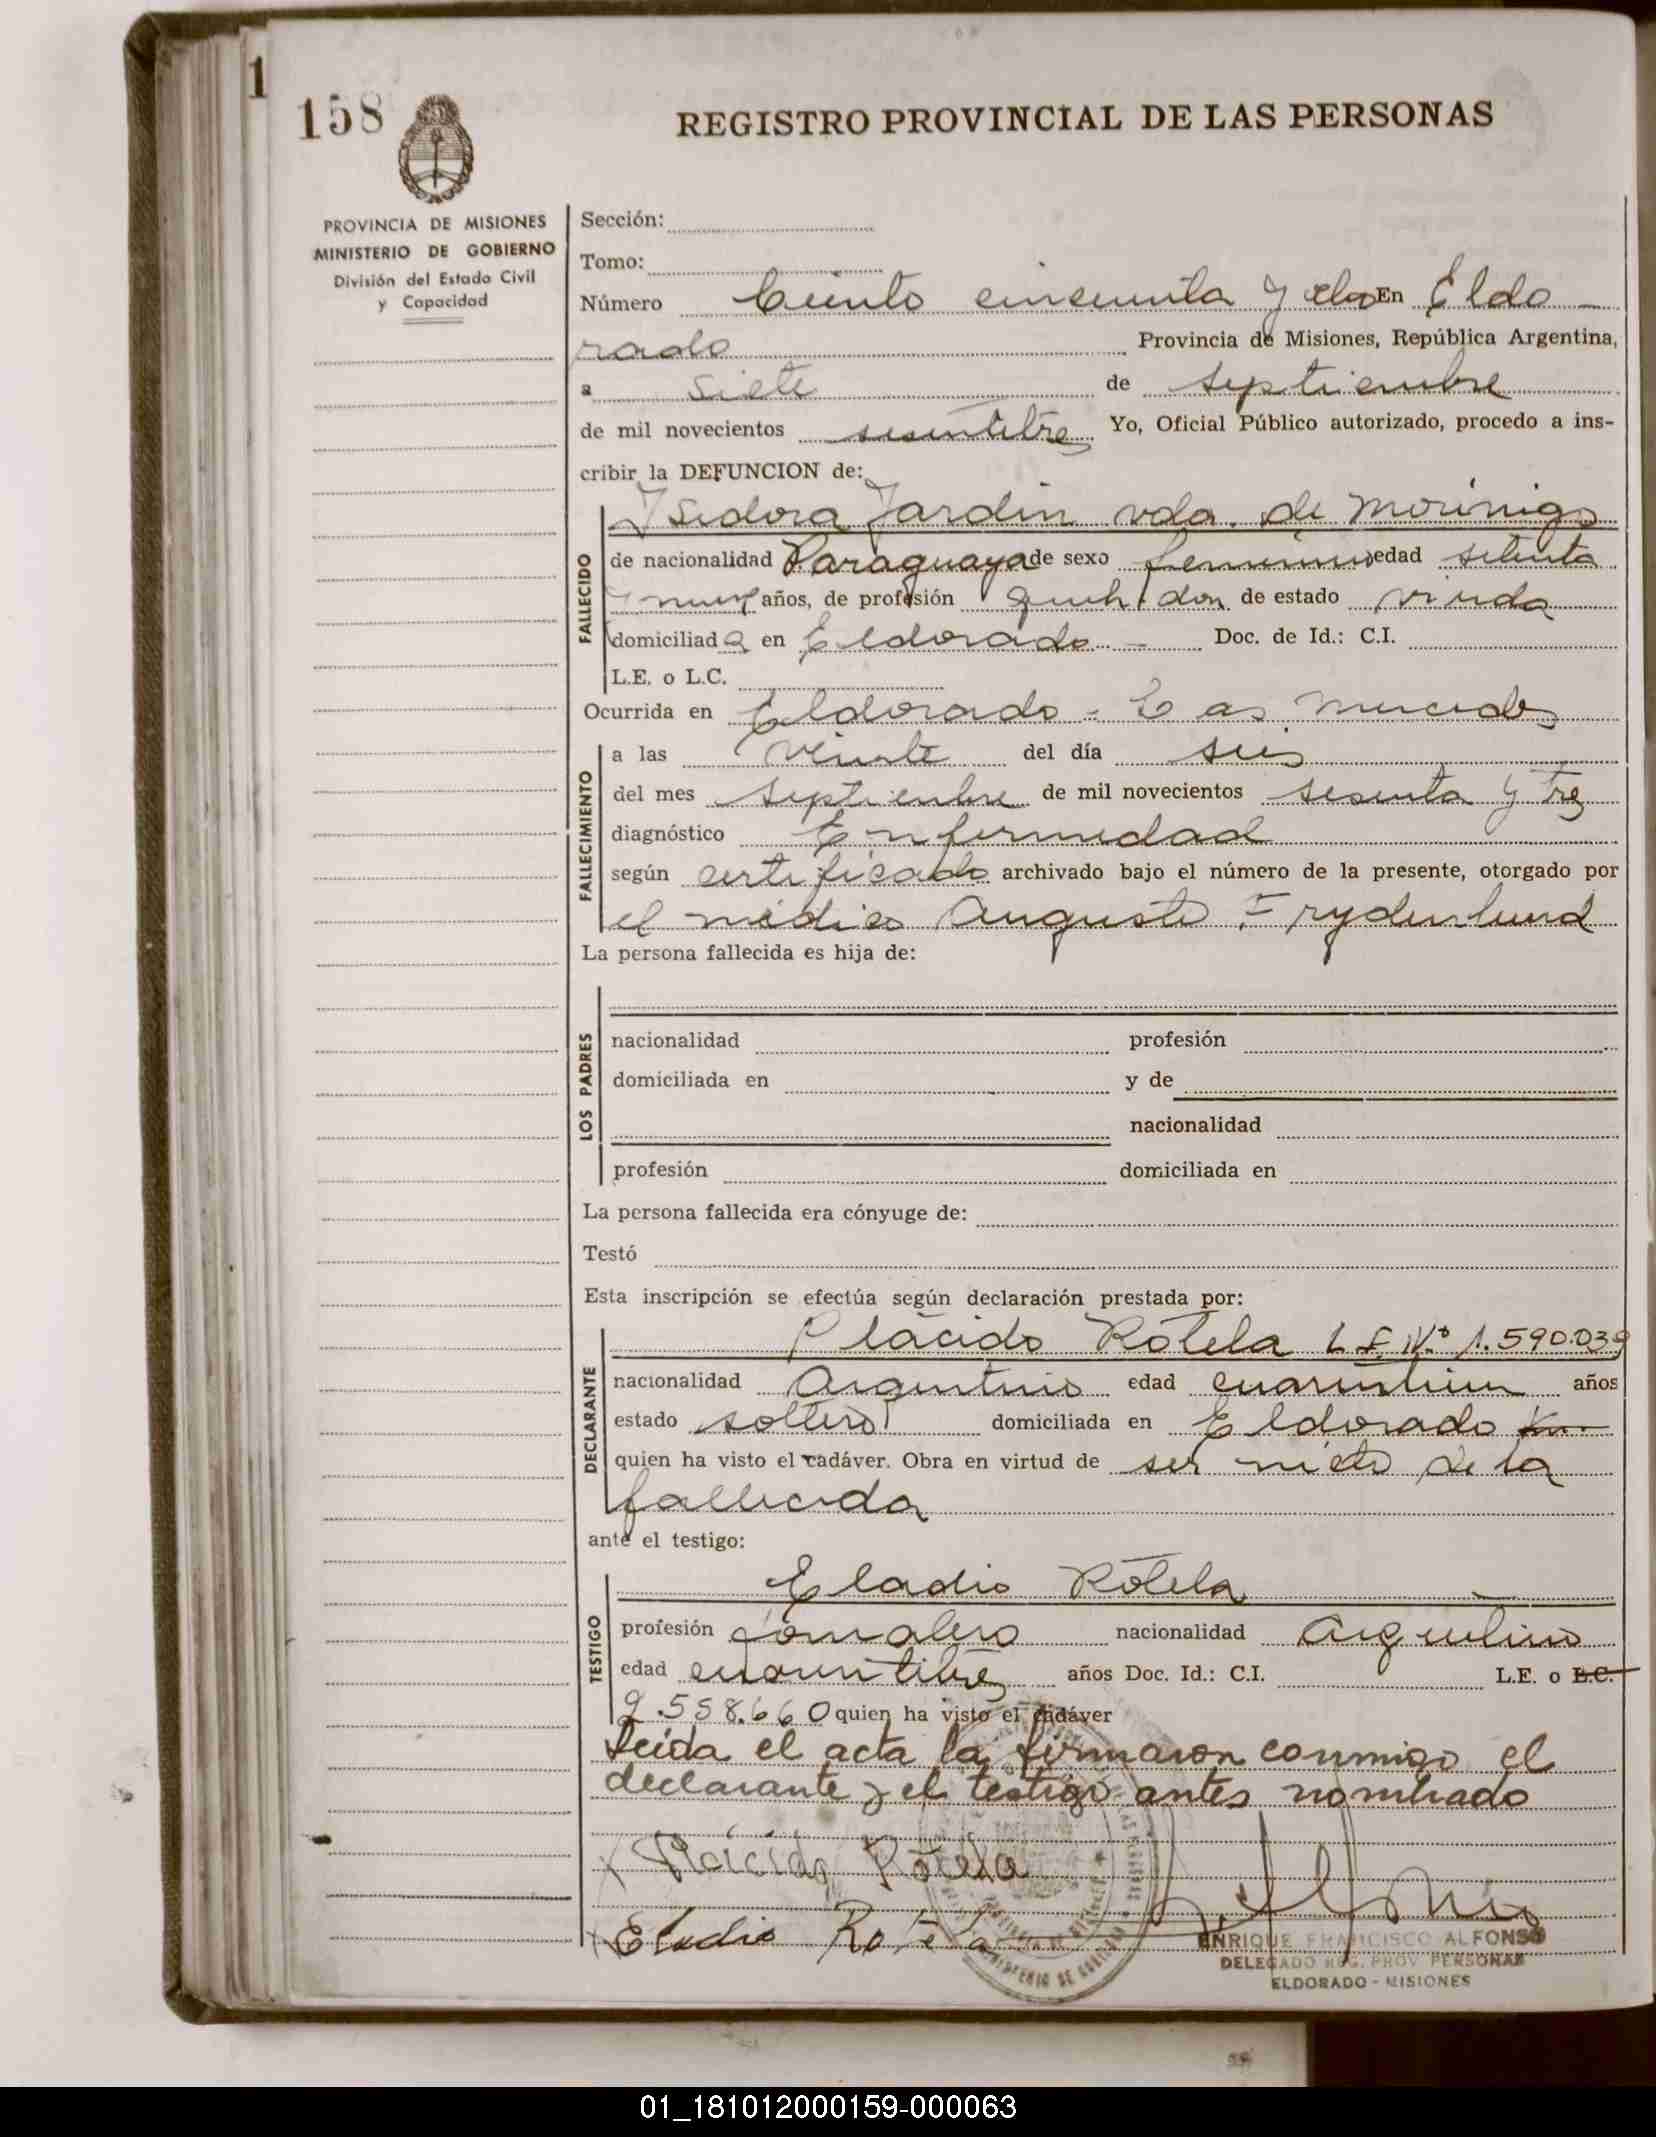 1
158
REGISTRO PROVINCIAL DE LAS PERSONAS
PROVINCIA DE MISIONES
MINISTERIO DE GOBIERNO
División del Estado Civil
y Capacidad
Sección:
Tomo:
Número Ciento cincuenta y En Eldo-
rado Provincia de Misiones, República Argentina,
a siete de septiembre
de mil novecientos sesentitres Yo, Oficial Público autorizado, procedo a ins-
cribir la DEFUNCION de:
FALLECIDO
Isidora Jardin vda. de Morinigo
de nacionalidad Paraguaya de sexo femenino edad setenta
y nueve años, de profesión de estado viuda
domiciliada en Eldorado - Doc. de Id.: C.I.
L.E. o L.C.
Ocurrida en Eldorado - Las Mercedes
FALLECIMIENTO
a las veinte del día seis
del mes septiembre de mil novecientos sesenta y tres
diagnóstico Enfermedad
según certificado archivado bajo el número de la presente, otorgado por
el médico Augusto Frydenlund
La persona fallecida es hija de:
LOS PADRES
nacionalidad profesión
domiciliada en y de
nacionalidad
profesión domiciliada en
La persona fallecida era cónyuge de:
Testó
Esta inscripción se efectúa según declaración prestada por:
DECLARANTE
Plácido Rotela L.E. Nº 1.590.039
nacionalidad Argentino edad años
estado soltero domiciliada en Eldorado Km.
quien ha visto el cadáver. Obra en virtud de ser nieto de la
fallecida
ante el testigo:
TESTIGO
Eladio Rotela
profesión jornalero nacionalidad Argentino
edad cuarentitres años Doc. Id.: C.I. L.E. o L.C.
9.558.660 quien ha visto el cadáver
Leida el acta la firmaron conmigo el
declarante y el testigo antes nombrado
Plácido Rotela
Eladio Rotela
ENRIQUE FRANCISCO ALFONSO
DELEGADO REG. PROV PERSONAS
ELDORADO - MISIONES
01_181012000159-000063